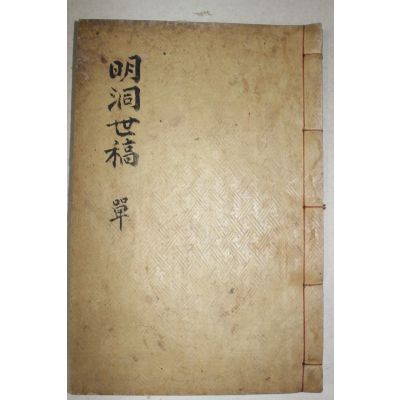 明洞世稿
單